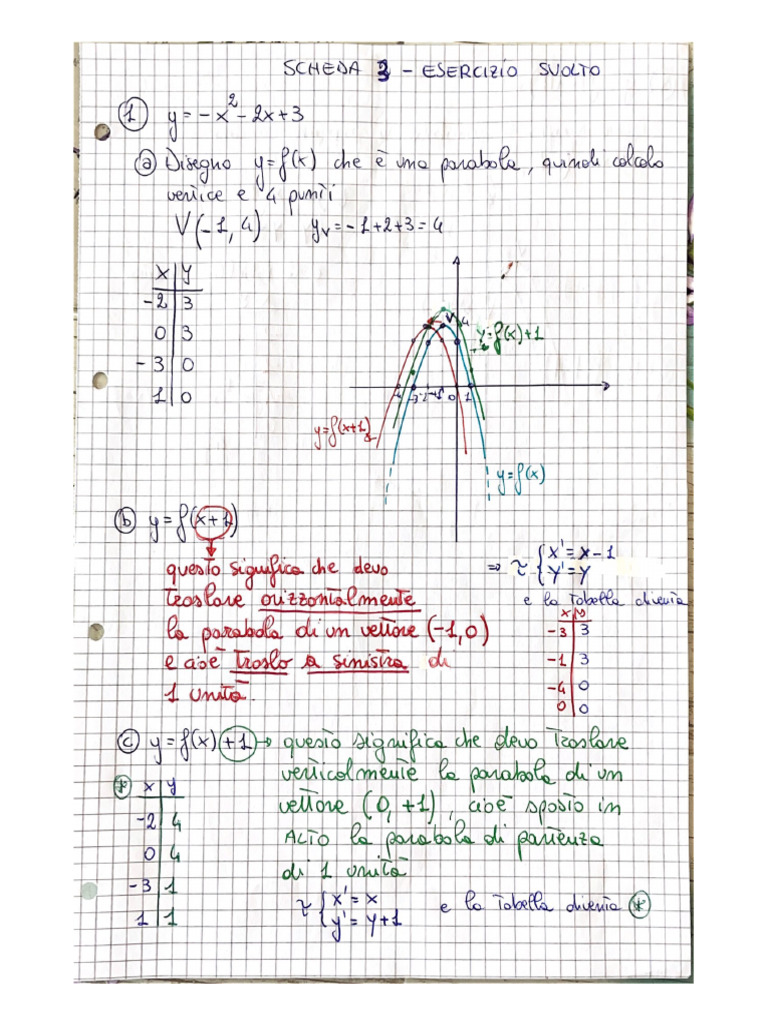 SCHEDA 3 - ESERCIZIO SVOLTO
1 y = -x² - 2x + 3
a Disegno y = f(x) che è una parabola, quindi calcolo
vertice e 4 punti
V(-1, 4) yᵥ = -1+2+3 = 4
x | y
-2 | 3
0 | 3
-3 | 0
1 | 0
V 4
y = f(x) + 1
-4 -3 -2 -1 0 1
y = f(x+1)
y = f(x)
b y = f(x+1)
questo significa che devo
traslare orizzontalmente
la parabola di un vettore (-1, 0)
e cioè traslo a sinistra di
1 unità.
⇒ τ { x' = x - 1
y' = y
e la tabella diventa
x | y
-3 | 3
-1 | 3
-4 | 0
0 | 0
c y = f(x) + 1 → questo significa che devo traslare
verticalmente la parabola di un
vettore (0, +1), cioè sposto in
ALTO la parabola di partenza
di 1 unità
* x | y
-2 | 4
0 | 4
-3 | 1
1 | 1
τ { x' = x
y' = y + 1
e la tabella diventa *